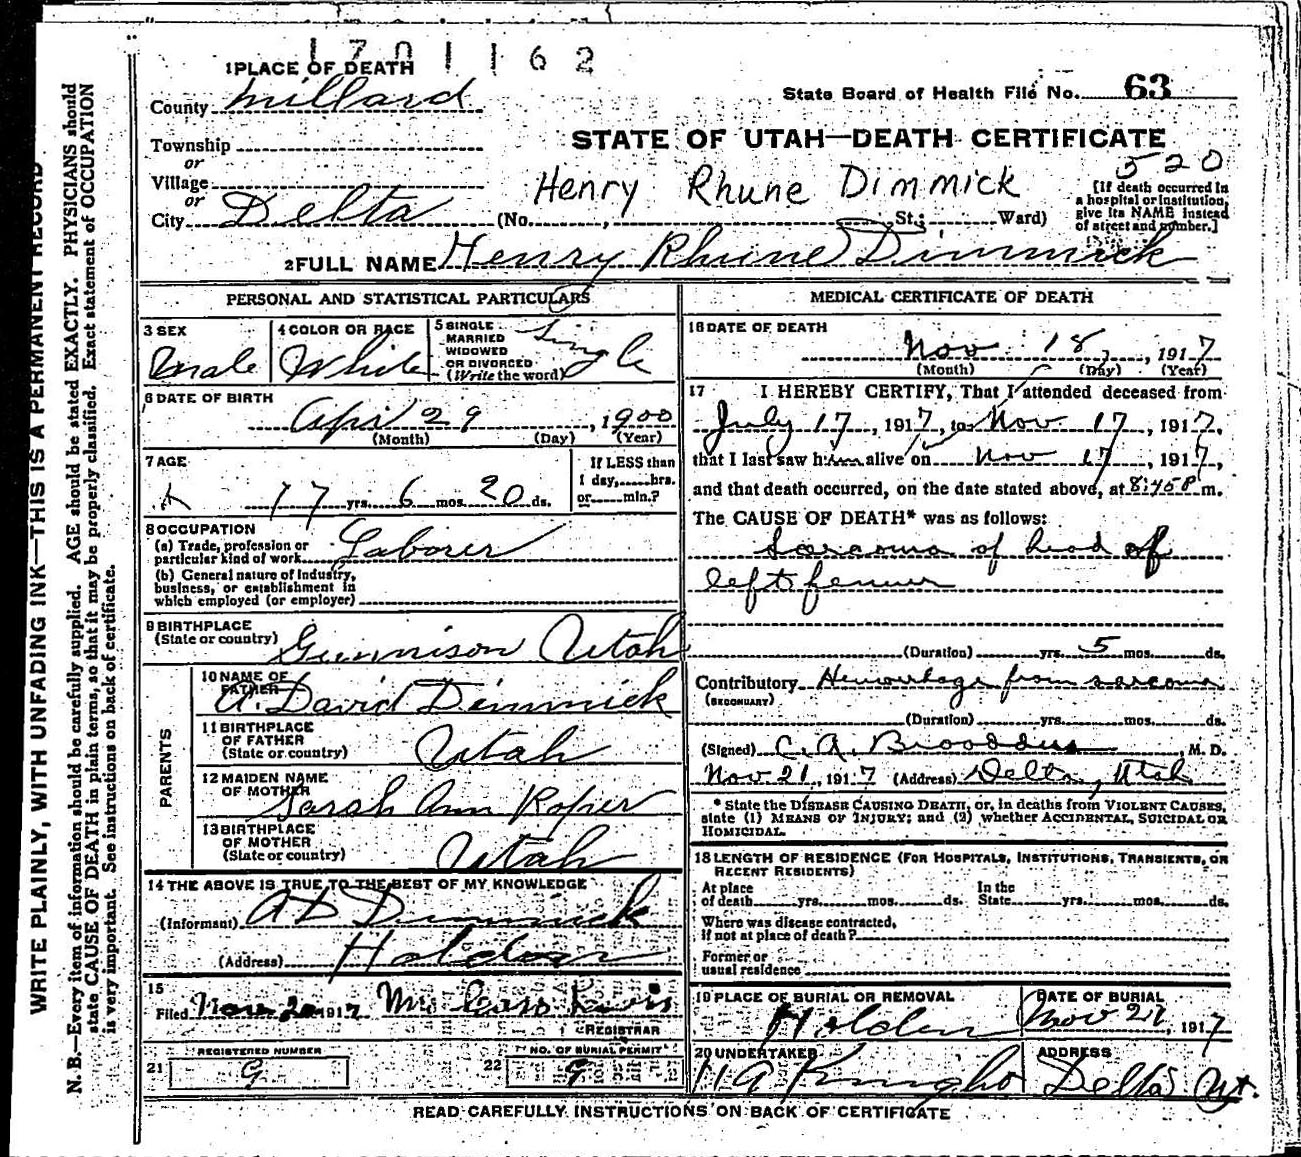 1701162
1 PLACE OF DEATH
County Millard
State Board of Health File No. 63
STATE OF UTAH—DEATH CERTIFICATE
Township
or
Village
or
City Delta
520
Henry Rhune Dimmick
(No. , St.; Ward)
[If death occurred in
a hospital or institution,
give its NAME instead
of street and number.]
2 FULL NAME Henry Rhune Dimmick
PERSONAL AND STATISTICAL PARTICULARS
3 SEX
Male
4 COLOR OR RACE
White
5 SINGLE
MARRIED
WIDOWED
OR DIVORCED
(Write the word)
Single
6 DATE OF BIRTH
April 29, 1900
(Month) (Day) (Year)
7 AGE
17 yrs. 6 mos. 20 ds.
If LESS than
1 day, hrs.
or min.?
8 OCCUPATION
(a) Trade, profession or
particular kind of work Laborer
(b) General nature of Industry,
business, or establishment in
which employed (or employer)
9 BIRTHPLACE
(State or country) Gunnison Utah
PARENTS
10 NAME OF
FATHER
A. David Dimmick
11 BIRTHPLACE
OF FATHER
(State or country) Utah
12 MAIDEN NAME
OF MOTHER
Sarah Ann Roper
13 BIRTHPLACE
OF MOTHER
(State or country) Utah
14 THE ABOVE IS TRUE TO THE BEST OF MY KNOWLEDGE
(Informant) A D Dimmick
(Address) Holden
15
Filed Nov 20 1917 Mrs
REGISTRAR
REGISTERED NUMBER
21 9
NO. OF BURIAL PERMIT
22 9
MEDICAL CERTIFICATE OF DEATH
16 DATE OF DEATH
Nov 18, 1917
(Month) (Day) (Year)
17 I HEREBY CERTIFY, That I attended deceased from
July 17, 1917, to Nov 17, 1917,
that I last saw him alive on Nov 17, 1917,
and that death occurred, on the date stated above, at 8:45 P m.
The CAUSE OF DEATH* was as follows:
Sarcoma of head of
left femur
(Duration) yrs. 5 mos. ds.
Contributory Hemorrhage from sarcoma
(SECONDARY)
(Duration) yrs. mos. ds.
(Signed) C. A. Broaddus, M. D.
Nov 21, 1917 (Address) Delta, Utah
* State the DISEASE CAUSING DEATH, or, in deaths from VIOLENT CAUSES,
state (1) MEANS OF INJURY; and (2) whether ACCIDENTAL, SUICIDAL OR
HOMICIDAL.
18 LENGTH OF RESIDENCE (FOR HOSPITALS, INSTITUTIONS, TRANSIENTS, OR
RECENT RESIDENTS)
At place
of death yrs. mos. ds.
In the
State yrs. mos. ds.
Where was disease contracted,
if not at place of death?
Former or
usual residence
19 PLACE OF BURIAL OR REMOVAL
Holden
DATE OF BURIAL
Nov 21, 1917
20 UNDERTAKER
ADDRESS
Delta Ut.
READ CAREFULLY INSTRUCTIONS ON BACK OF CERTIFICATE
WRITE PLAINLY, WITH UNFADING INK—THIS IS A PERMANENT RECORD
N. B.—Every item of information should be carefully supplied. AGE should be stated EXACTLY. PHYSICIANS should
state CAUSE OF DEATH in plain terms, so that it may be properly classified. Exact statement of OCCUPATION
is very important. See instructions on back of certificate.